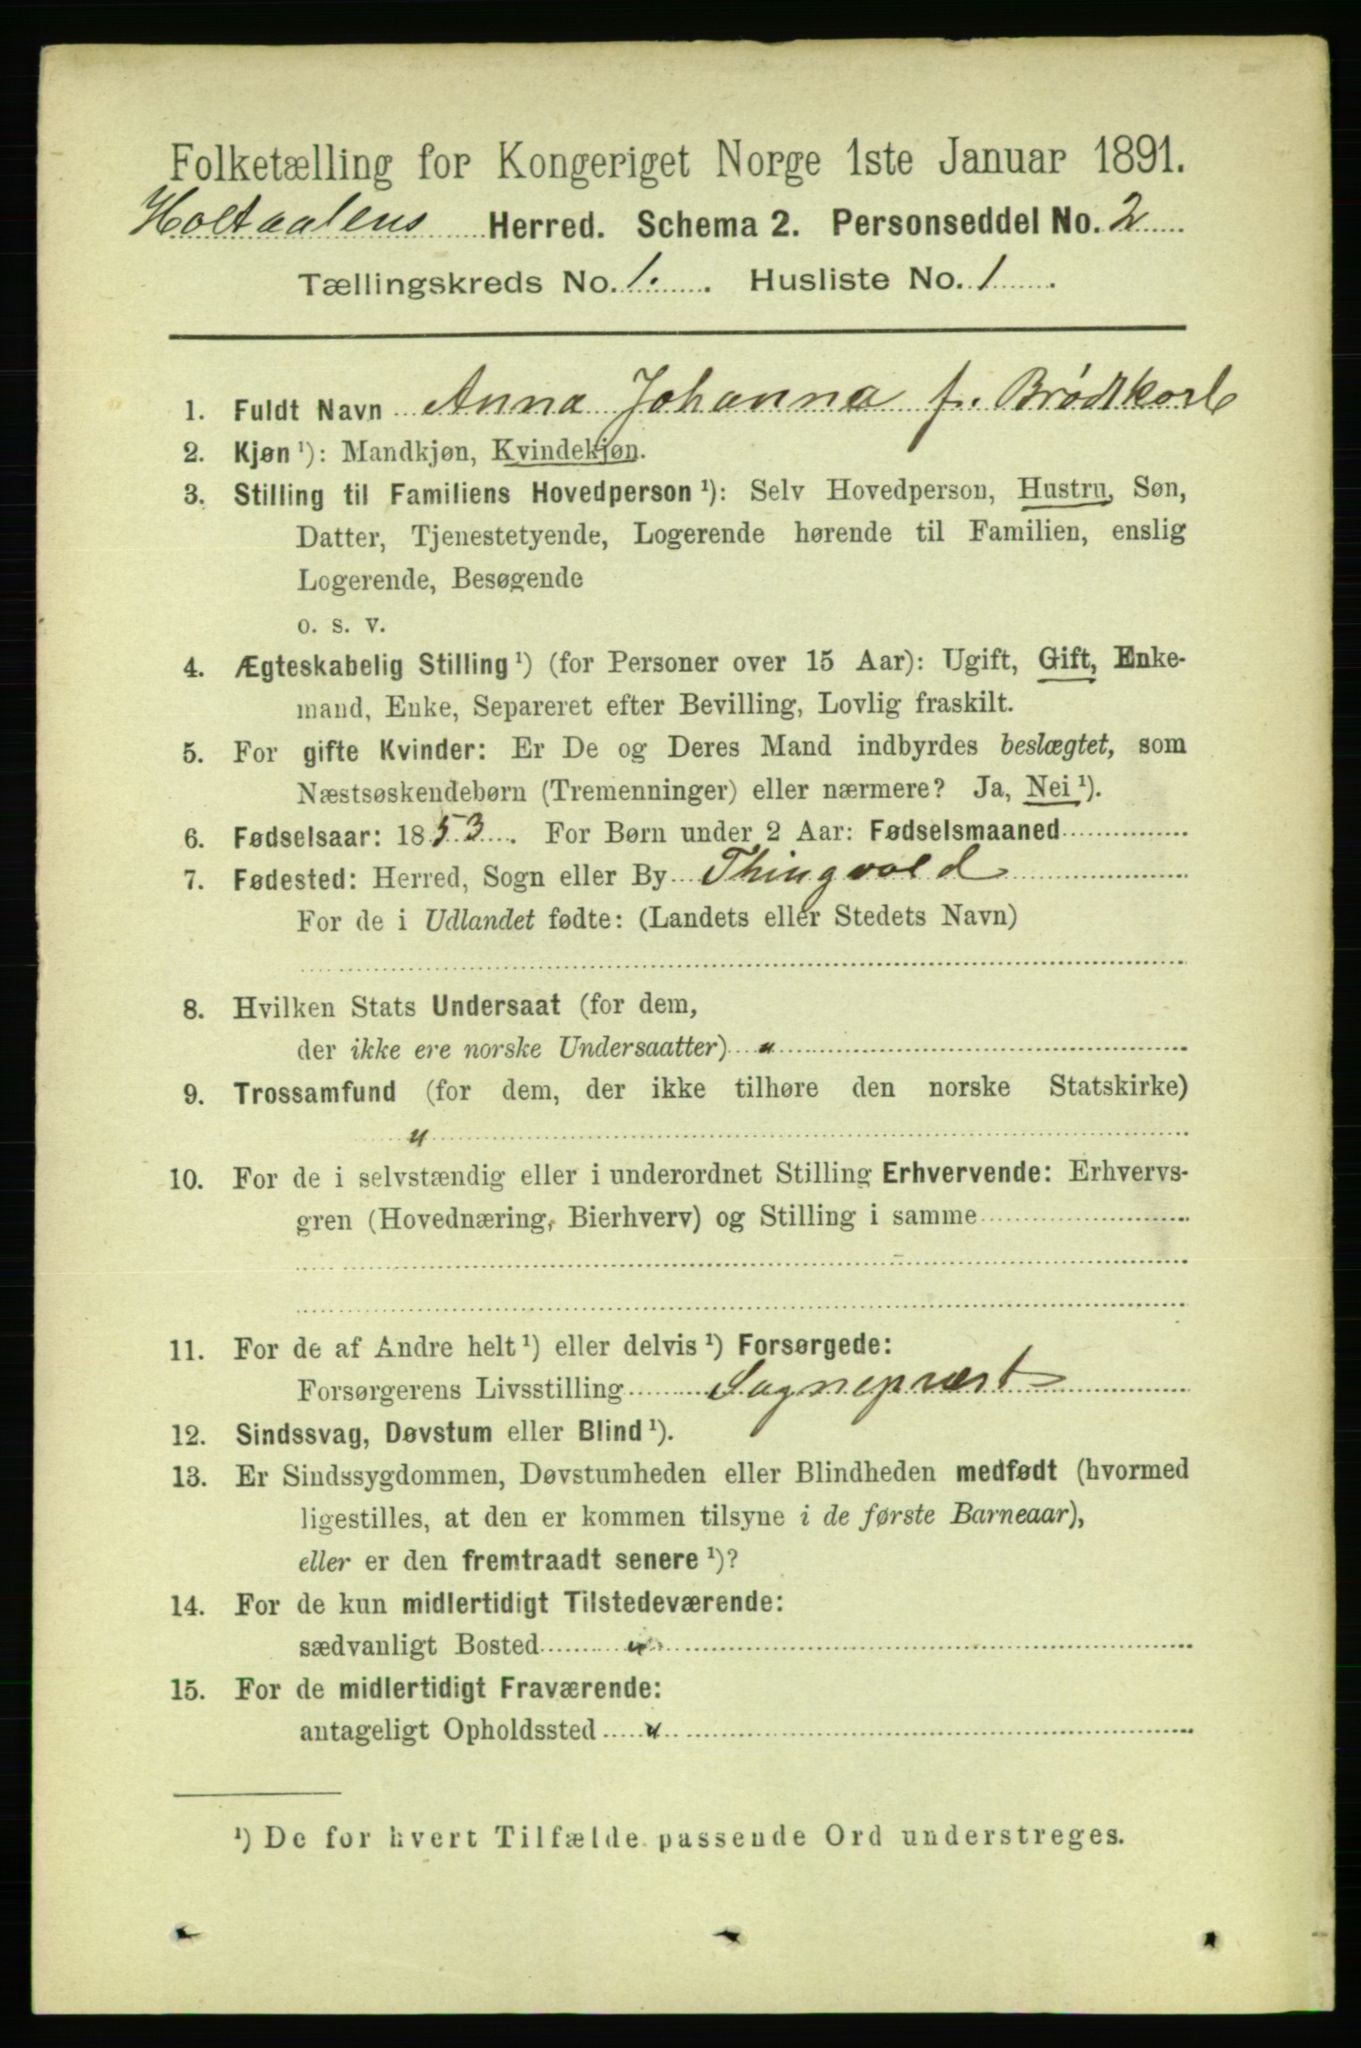 Folketælling for Kongeriget Norge 1ste Januar 1891.
Holtaalens Herred. Schema 2. Personseddel No. 2
Tællingskreds No. 1. Husliste No. 1
1. Fuldt Navn Anna Johanna f. Brødtkorb
2. Kjøn ¹): Mandkjøn, Kvindekjøn.
3. Stilling til Familiens Hovedperson ¹): Selv Hovedperson, Hustru, Søn,
Datter, Tjenestetyende, Logerende hørende til Familien, enslig
Logerende, Besøgende
o. s. v.
4. Ægteskabelig Stilling ¹) (for Personer over 15 Aar): Ugift, Gift, Enke-
mand, Enke, Separeret efter Bevilling, Lovlig fraskilt.
5. For gifte Kvinder: Er De og Deres Mand indbyrdes beslægtet, som
Næstsøskendebørn (Tremenninger) eller nærmere? Ja, Nei ¹).
6. Fødselsaar: 1853. For Børn under 2 Aar: Fødselsmaaned
7. Fødested: Herred, Sogn eller By Thingvold
For de i Udlandet fødte: (Landets eller Stedets Navn)
8. Hvilken Stats Undersaat (for dem,
der ikke ere norske Undersaatter) "
9. Trossamfund (for dem, der ikke tilhøre den norske Statskirke)
"
10. For de i selvstændig eller i underordnet Stilling Erhvervende: Erhvervs-
gren (Hovednæring, Bierhverv) og Stilling i samme
11. For de af Andre helt ¹) eller delvis ¹) Forsørgede:
Forsørgerens Livsstilling Sognepræst
12. Sindssvag, Døvstum eller Blind ¹).
13. Er Sindssygdommen, Døvstumheden eller Blindheden medfødt (hvormed
ligestilles, at den er kommen tilsyne i de første Barneaar),
eller er den fremtraadt senere ¹)?
14. For de kun midlertidigt Tilstedeværende:
sædvanligt Bosted "
15. For de midlertidigt Fraværende:
antageligt Opholdssted "
¹) De for hvert Tilfælde passende Ord understreges.